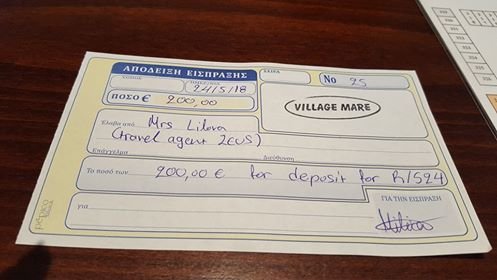 ΑΠΟΔΕΙΞΗ ΕΙΣΠΡΑΞΗΣ
ΣΕΙΡΑ
No 25
24/5/18
ΠΟΣΟ € 200,00
VILLAGE MARE
Έλαβα από Mrs Lilova
(travel agent ZEUS)
Επάγγελμα Διεύθυνση
Το ποσό των 200,00 € for deposit for R/524
για
ΓΙΑ ΤΗΝ ΕΙΣΠΡΑΞΗ